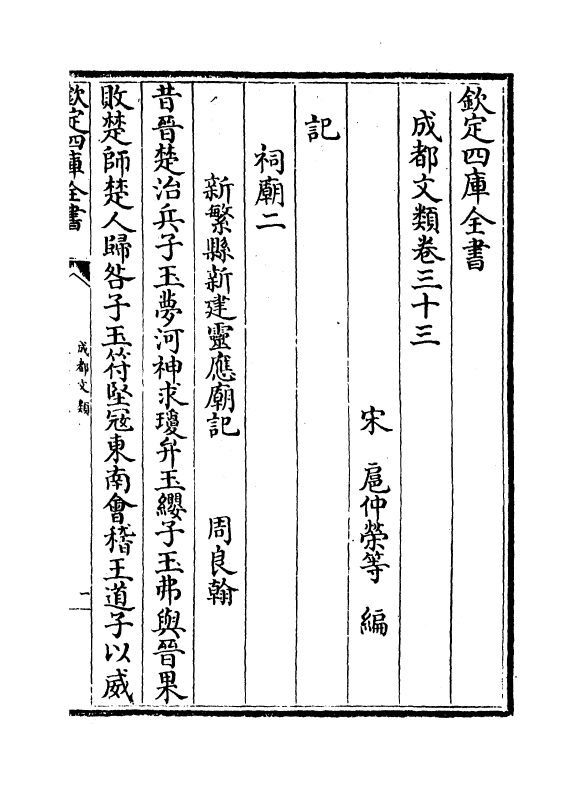 欽定四庫全書
成都文類卷三十三
宋 扈仲榮等 編
記
祠廟二
新繁縣新建靈應廟記 周良翰
昔晉楚治兵子玉夢河神求瓊弁玉纓子玉弗與晉果
敗楚師楚人歸咎子玉苻堅冦東南會稽王道子以威
欽定四庫全書
成都文類
一